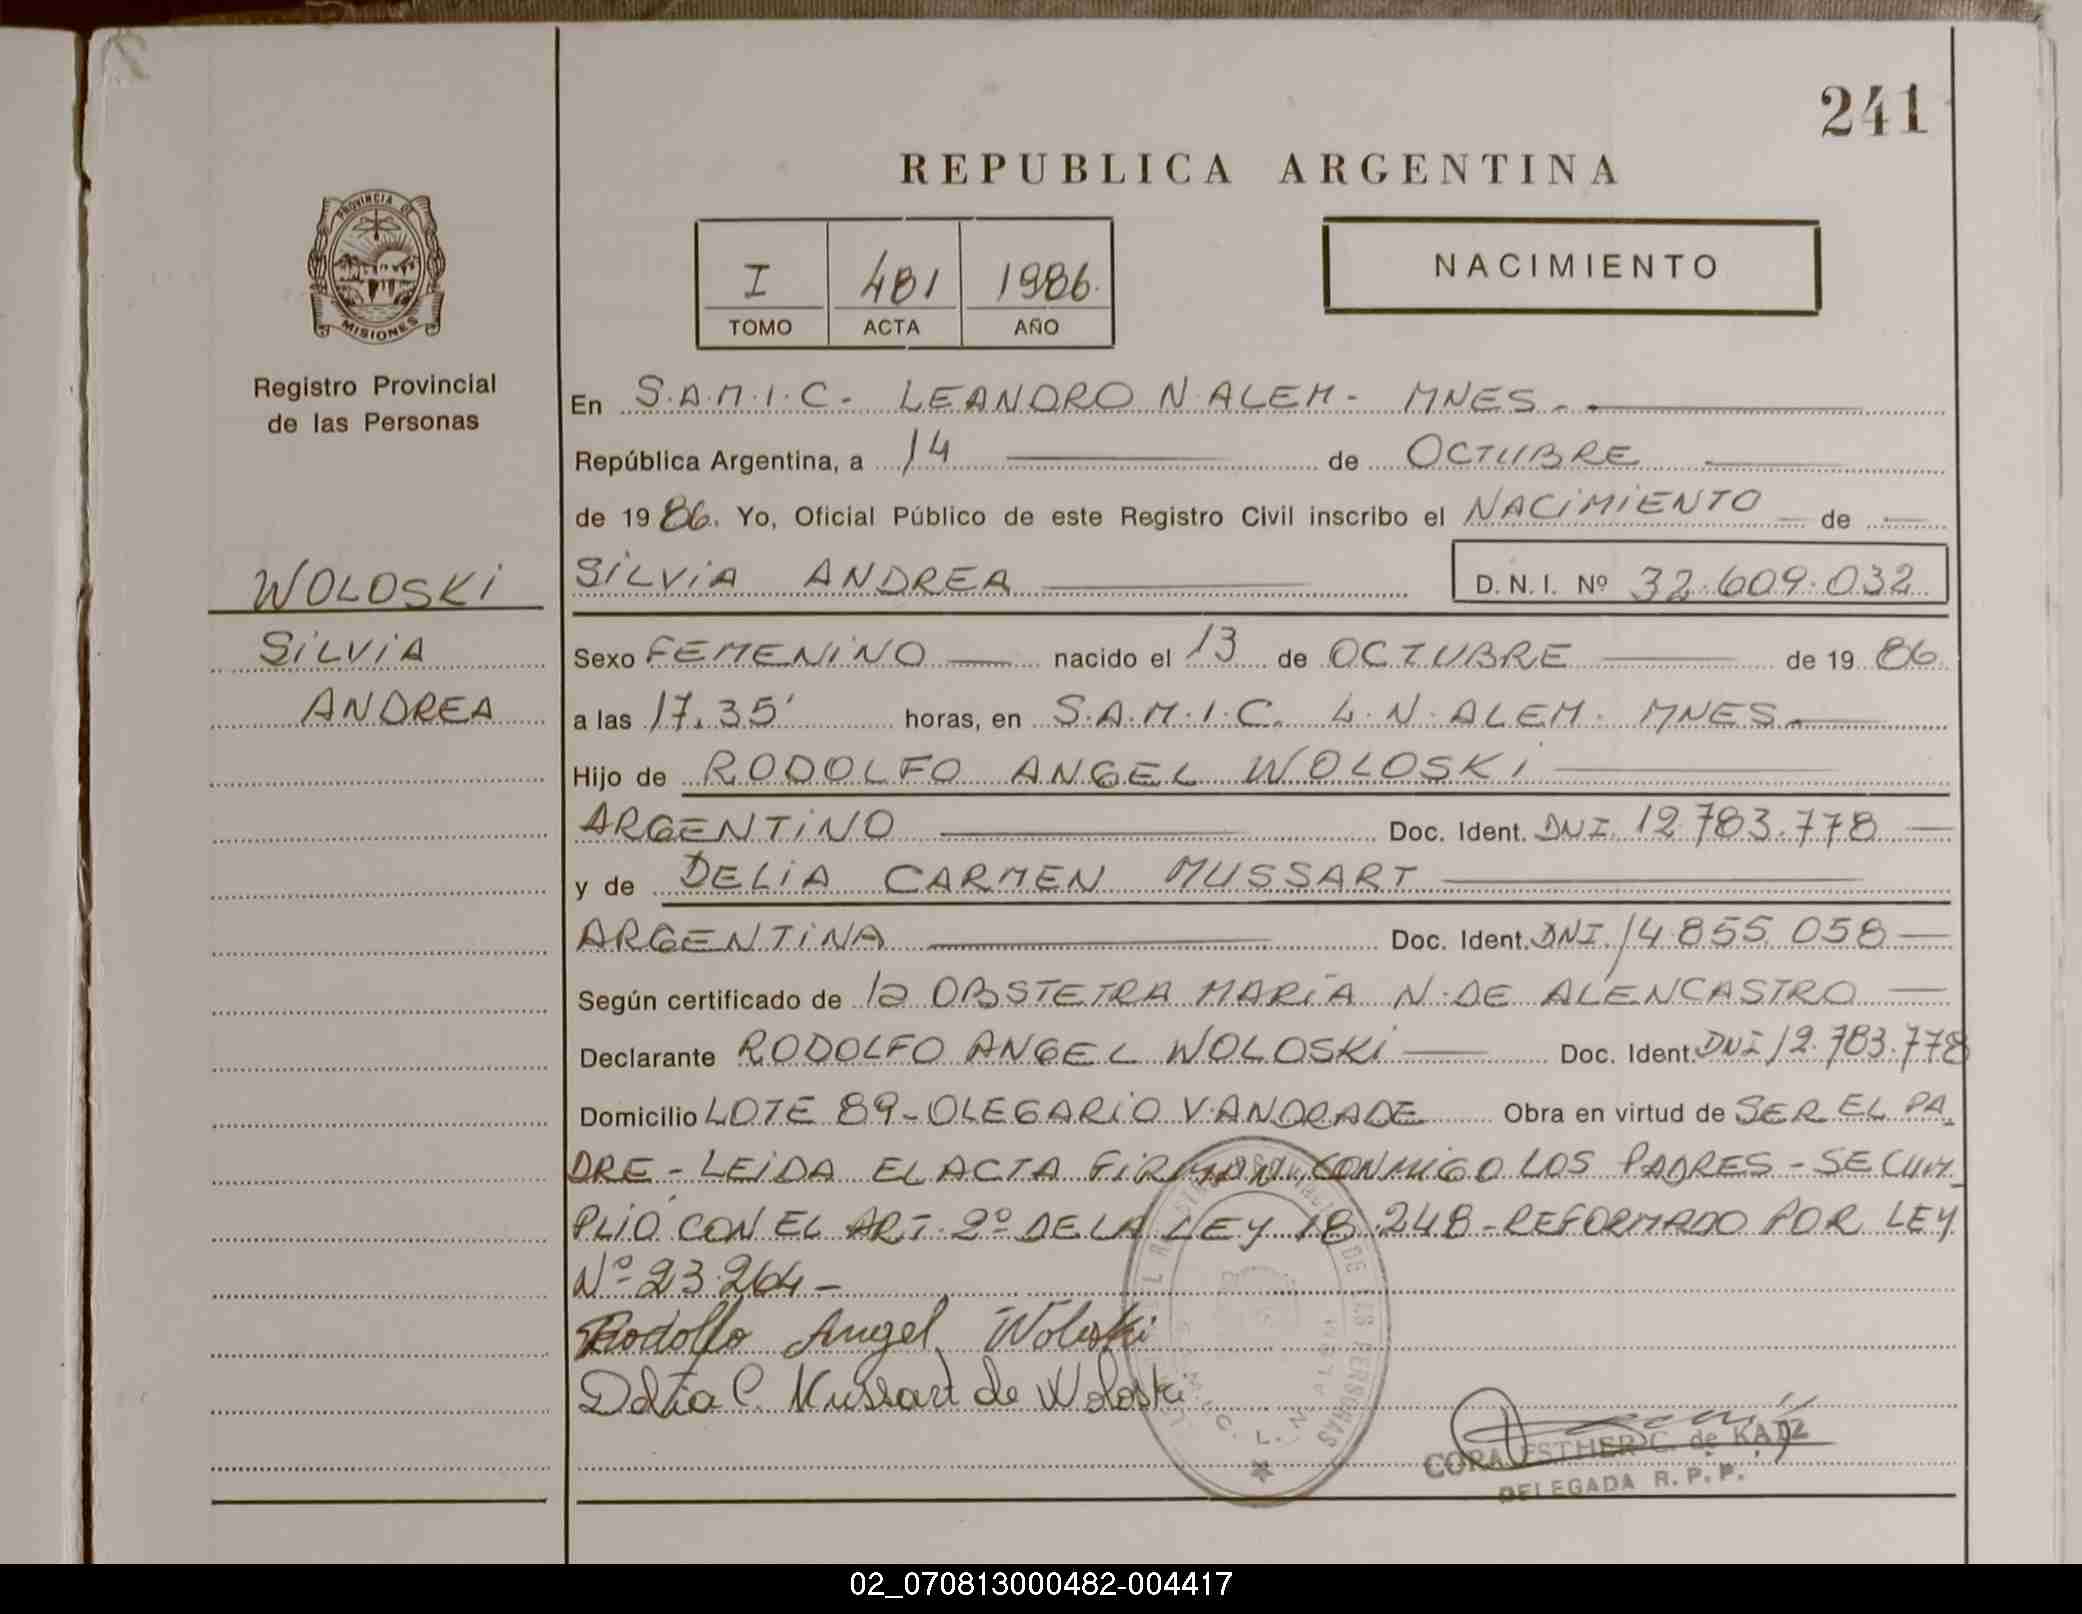 241
REPUBLICA ARGENTINA
PROVINCIA DE
MISIONES
Registro Provincial
de las Personas
I 481 1986.
TOMO ACTA AÑO
NACIMIENTO
En S.A.M.I.C. - LEANDRO N. ALEM - MNES. -
República Argentina, a 14 de OCTUBRE
de 1986. Yo, Oficial Público de este Registro Civil inscribo el NACIMIENTO de
WOLOSKI
SILVIA ANDREA D.N.I. Nº 32.609.032
SILVIA
Sexo FEMENINO nacido el 13 de OCTUBRE de 1986
ANDREA
a las 17.35' horas, en S.A.M.I.C. L.N. ALEM. MNES.
Hijo de RODOLFO ANGEL WOLOSKI
ARGENTINO Doc. Ident. DNI. 12.783.778
y de DELIA CARMEN MUSSART
ARGENTINA Doc. Ident. DNI. 14.855.058
Según certificado de la OBSTETRA MARÍA N. DE ALENCASTRO
Declarante RODOLFO ANGEL WOLOSKI Doc. Ident. DNI 12.783.778
Domicilio LOTE 89 - OLEGARIO V. ANDRADE Obra en virtud de SER EL PA_
DRE - LEIDA EL ACTA FIRMAN CONMIGO LOS PADRES - SE CUM_
PLIÓ CON EL ART. 2º DE LA LEY 18.248 - REFORMADO POR LEY
Nº 23.264 -
Rodolfo Angel Woloski
Delia C. Mussart de Woloski
DE LAS PERSONAS
CORA ESTHER C. de KATZ
DELEGADA R. P. P.
02_070813000482-004417